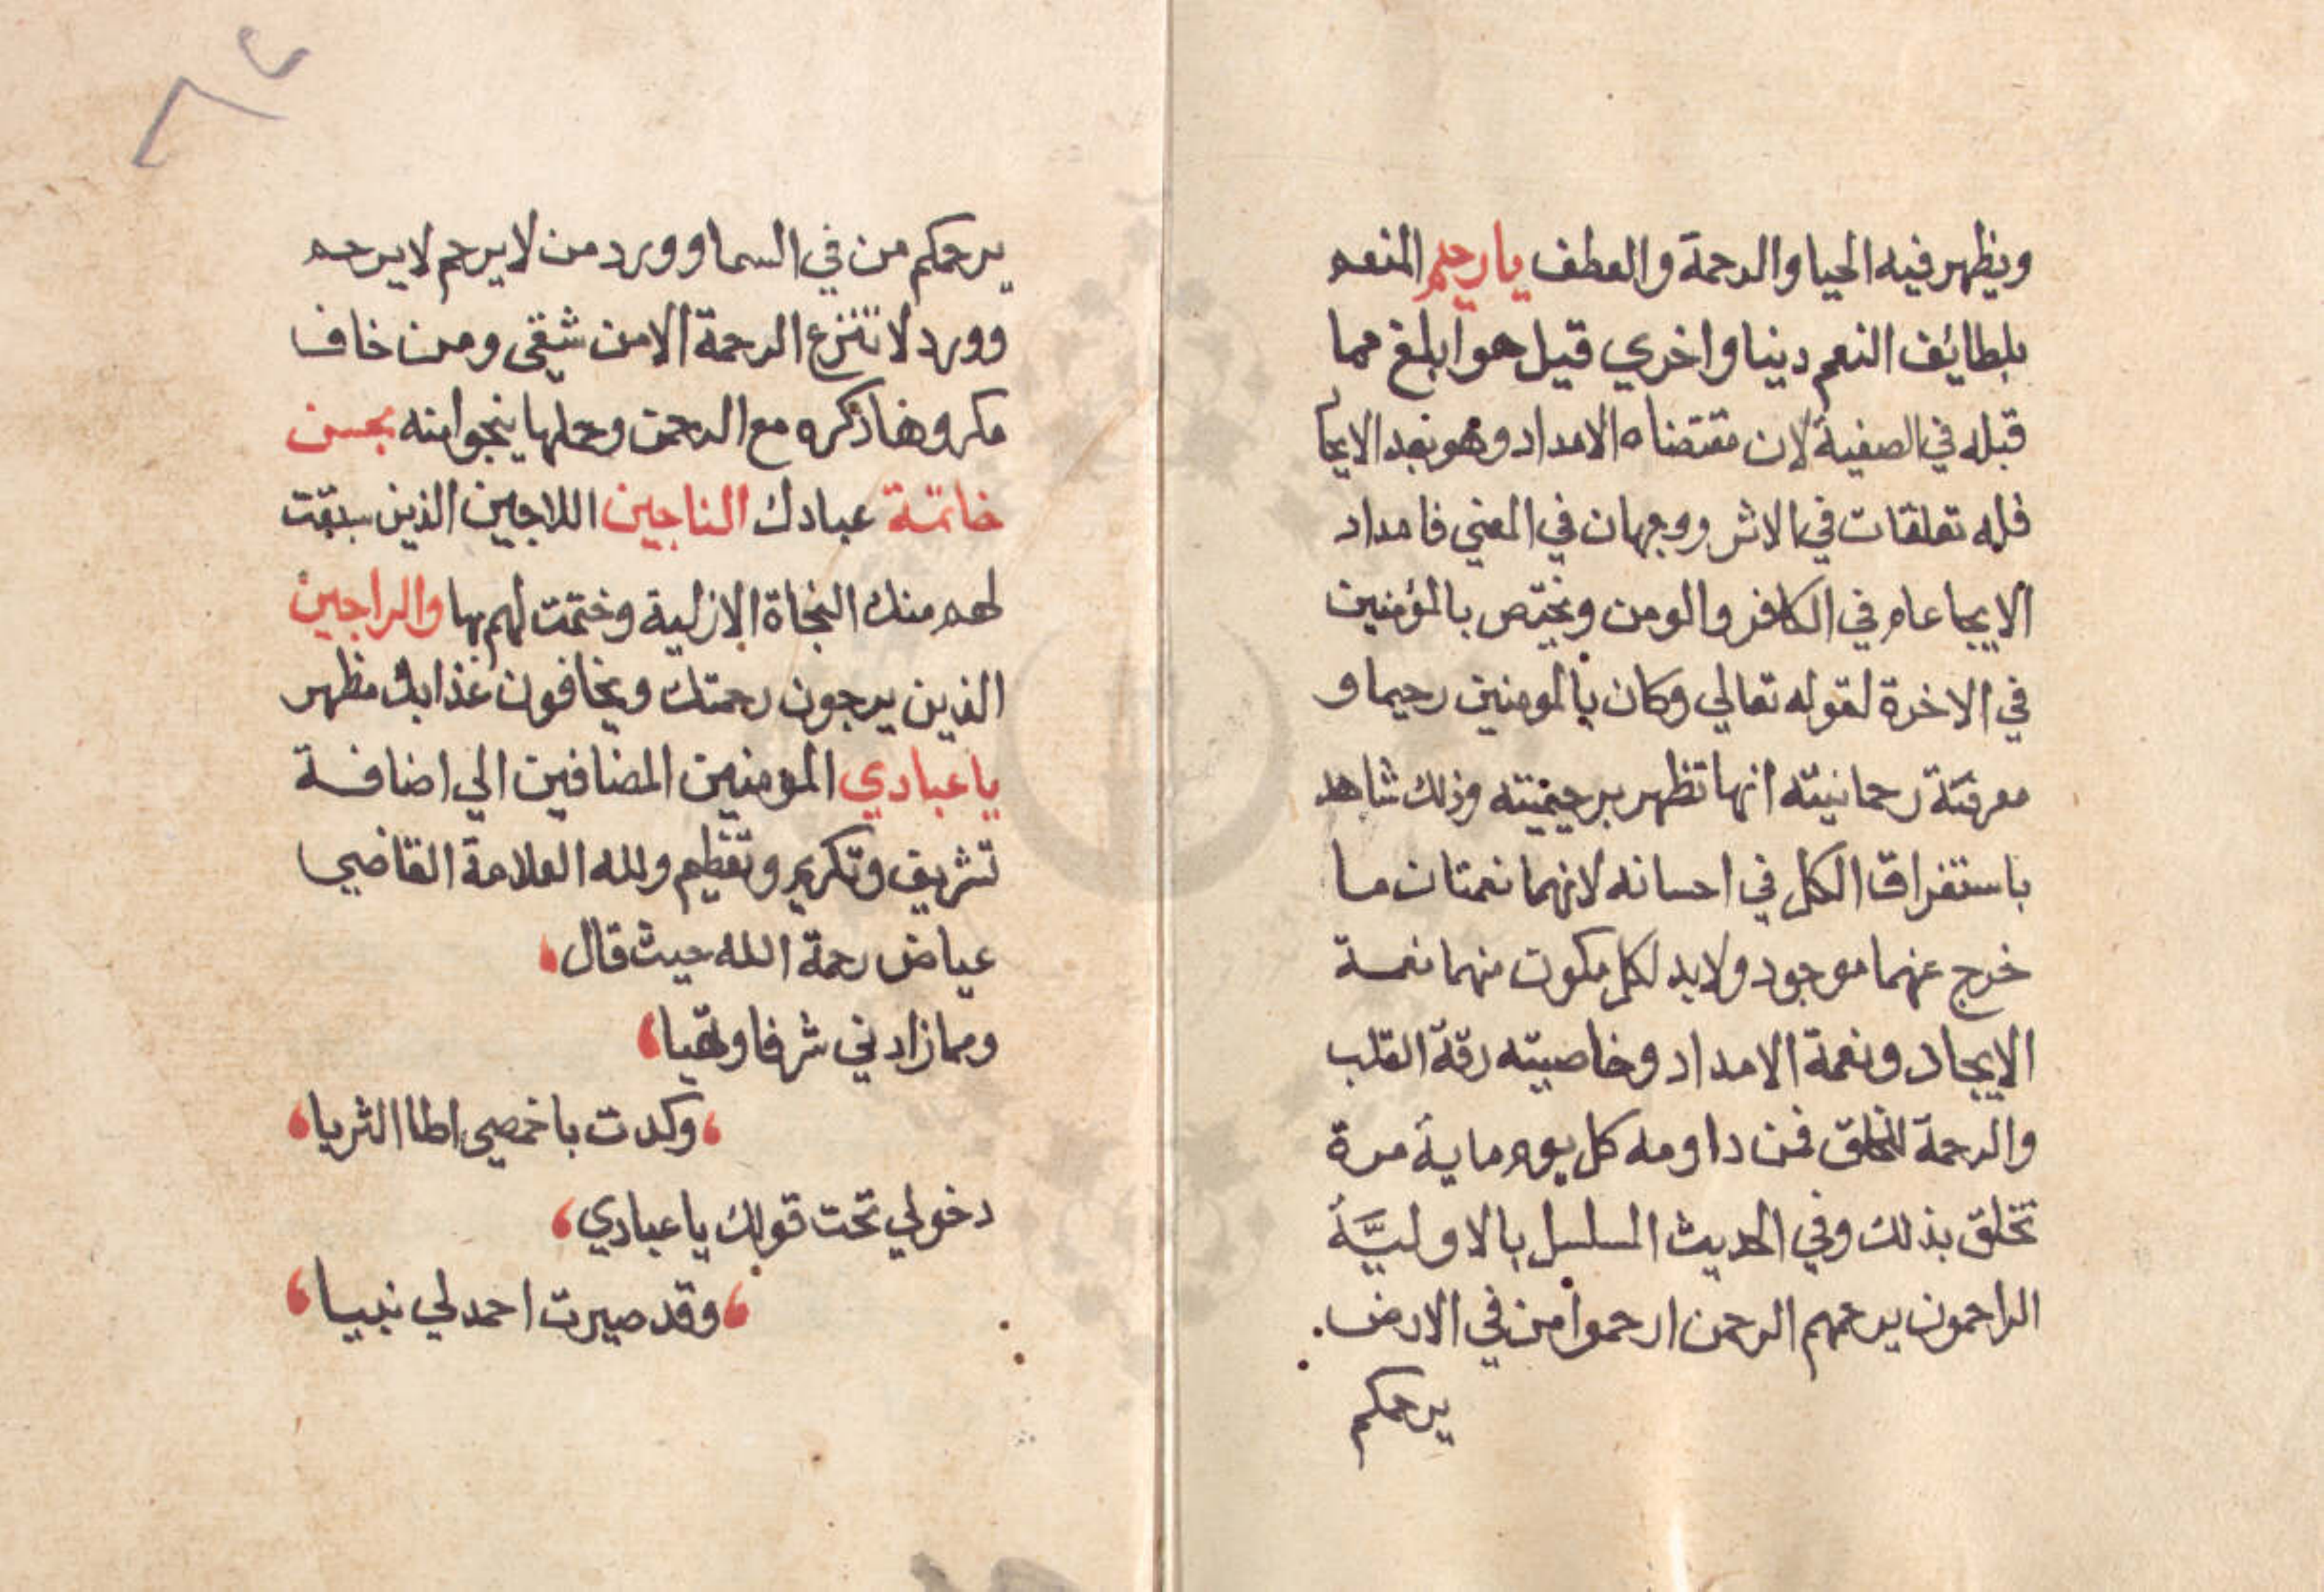 ويظهر فيه الحيا والرحمة والعطف يا رحيم المنعم
بلطايف النعم دينا واخري قيل هو ابلغ مما
قبله في الصفية لان مقتضاه الامداد وهو بعد الايجا
فله تعلقات في الاثر ووجهان في المعني فامداد
الايجا عام في الكافر والومن ويختص بالمؤمنين
في الاخرة لقوله تعالي وكان بالمومنين رحيما و
معرفته رحمانيته انها تظهر برحيميته وذلك شاهد
باستغراق الكل في احسانه لانهما نعمتان ما
خرج عنهما موجود ولابد لكل مكون منهما نعمة
الايجاد ونعمة الامداد وخاصيته رقة القلب
والرحمة للخلق فمن داومه كل يوم ماية مرة
تخلق بذلك وفي الحديث المسلسل بالاوليَّة
الراحمون يرحمهم الرحمن ارحموا من في الارض
يرحمكم
٨٢
يرحمكم من في السما وورد من لا يرحم لا يرحم
وورد لا تنزع الرحمة الا من شقي ومن خاف
مكروها ذكره مع الرحمن وحملها ينجوا منه بحسن
خاتمة عبادك الناجين اللاجين الذين سبقت
لهم منك النجاة الازلية وختمت لهم بها والراجين
الذين يرجون رحمتك ويخافون عذابك مظهر
يا عبادي المومنين المضافين الي اضافة
تشريف وتكريم وتعظيم ولله العلامة القاضي
عياض رحمة الله حيث قال
ومما زادني شرفا وتيها
وكدت باخمصي اطا الثريا
دخولي تحت قولك يا عبادي
وقد صيرت احمد لي نبيا